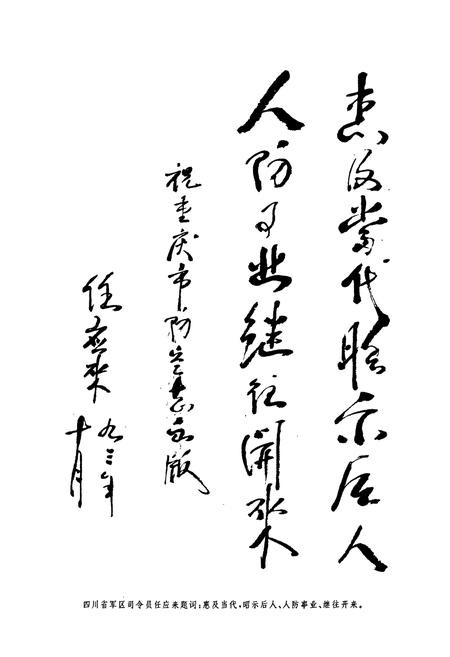 惠及当代昭示后人
人防事业继往開來
祝重庆市防空志出版
任应来
九三年
十月
四川省军区司令员任应来题词：惠及当代，昭示后人、人防事业、继往开来。